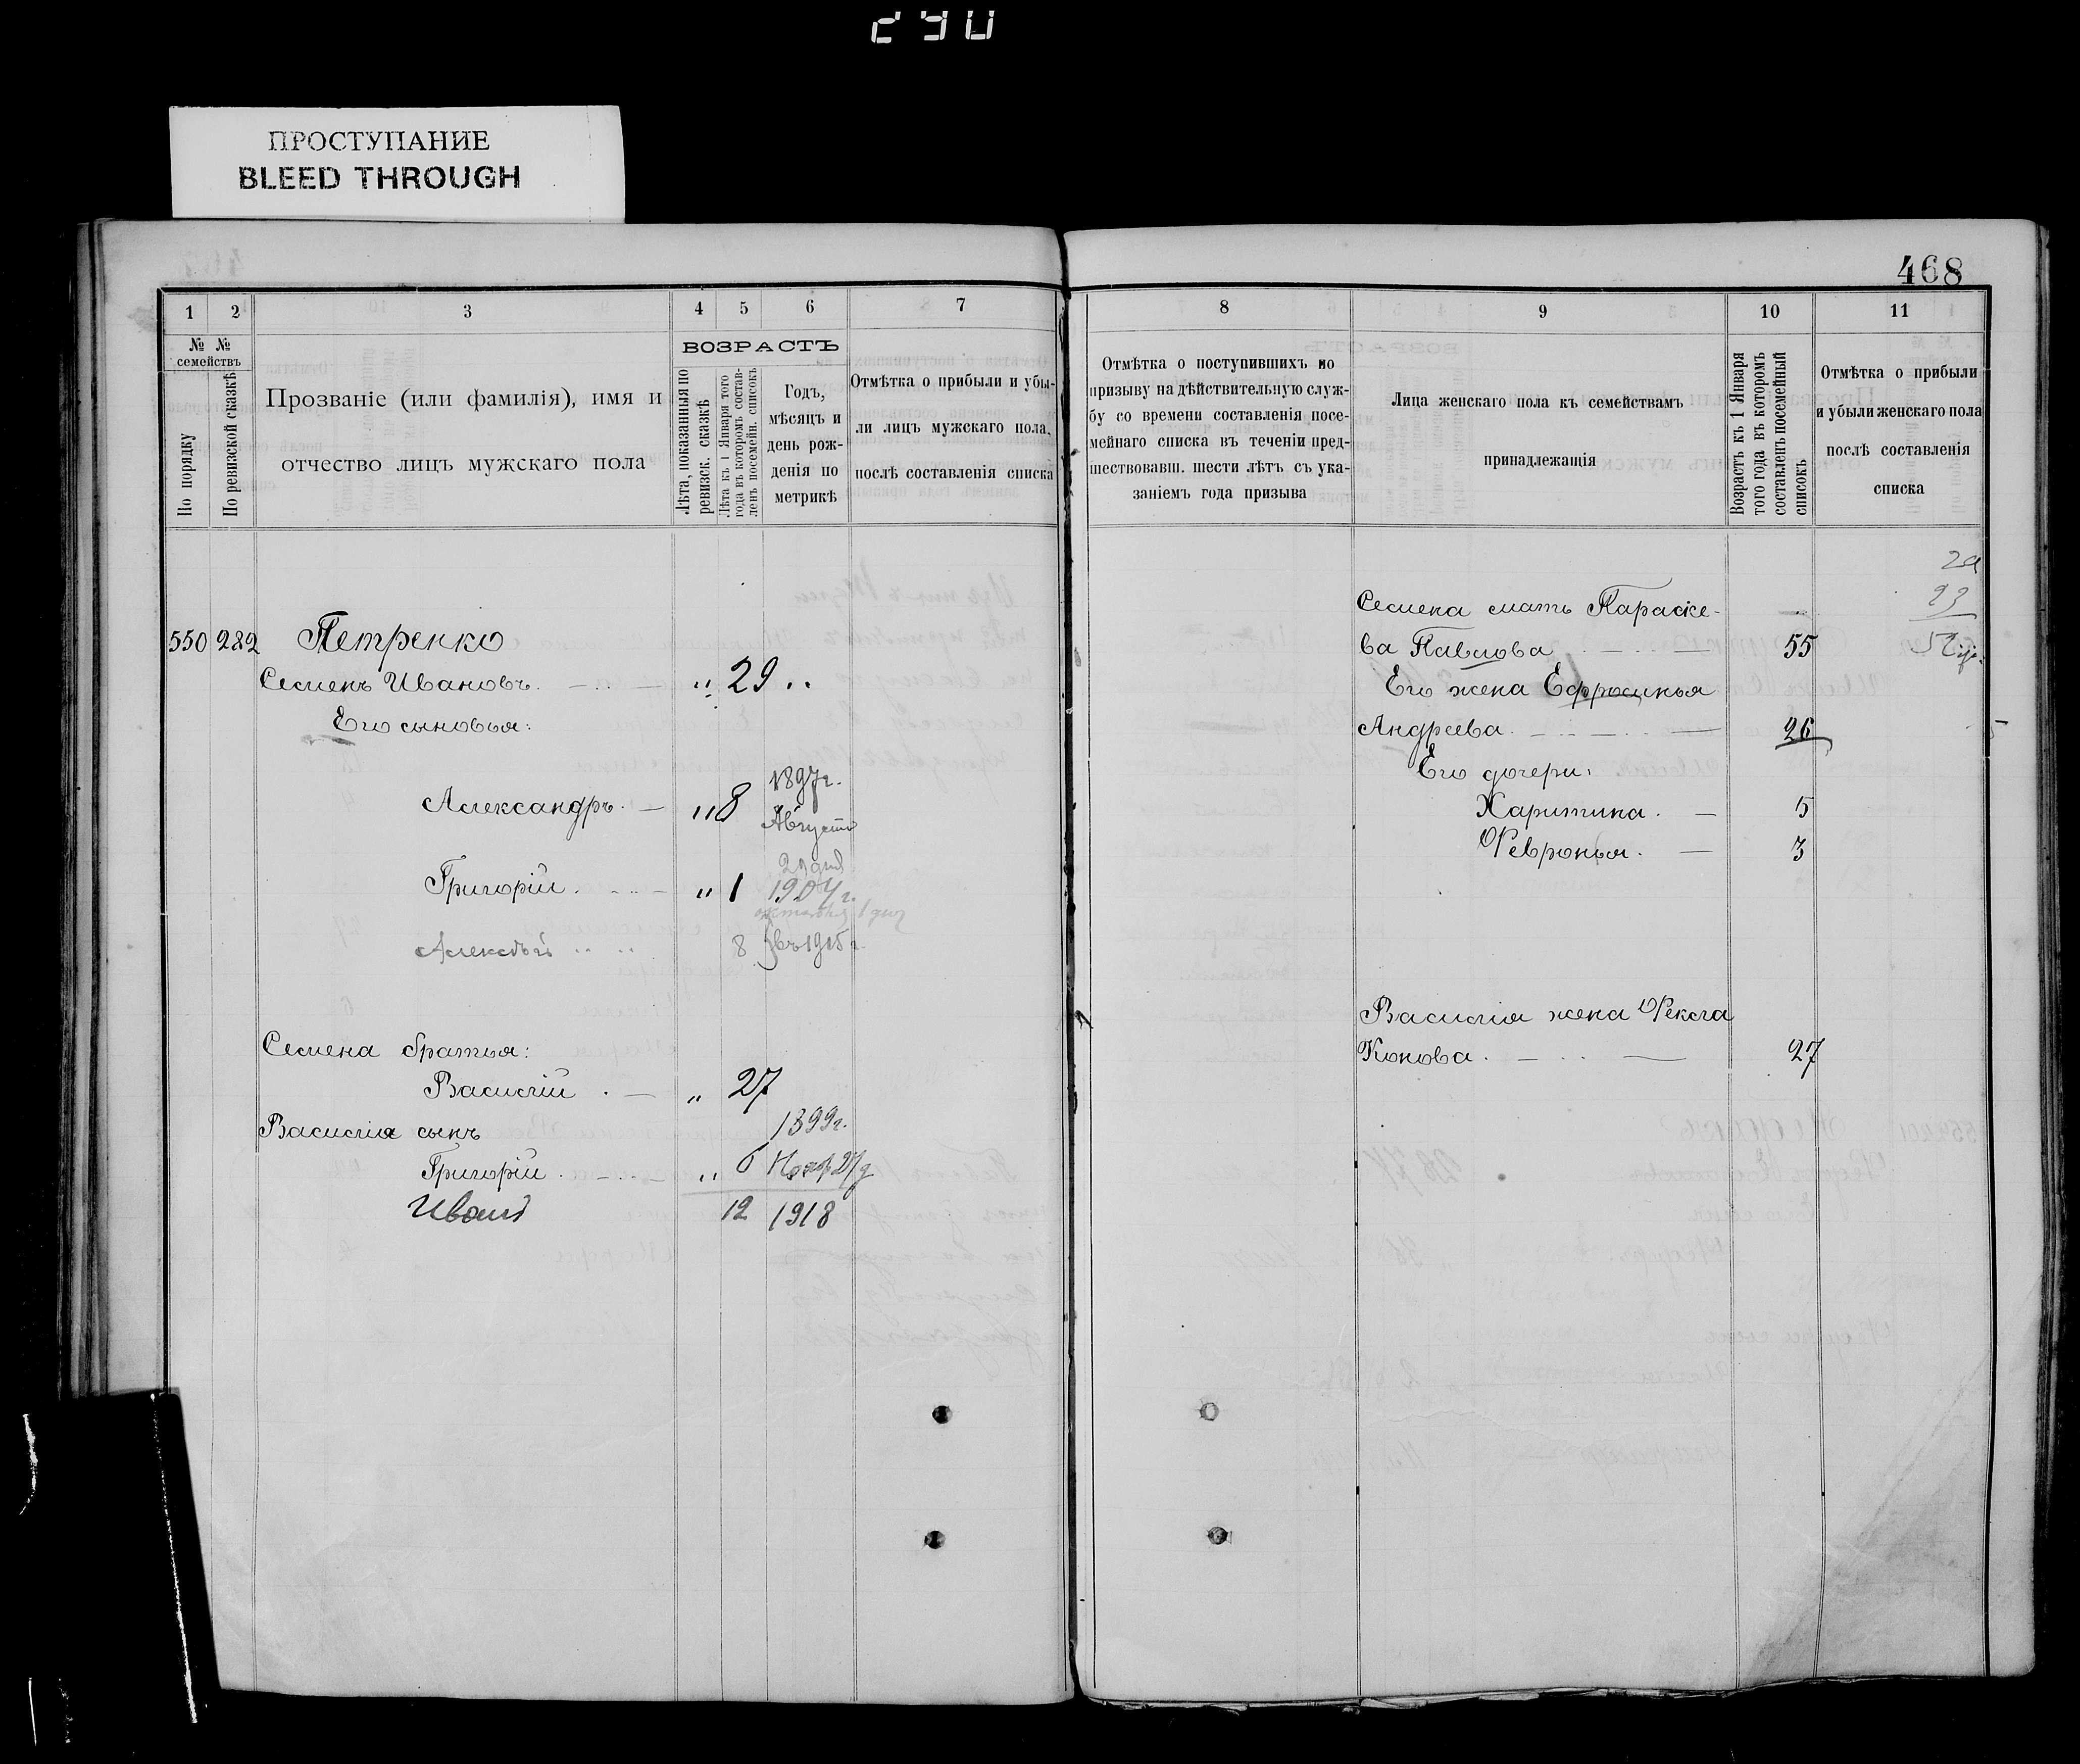 290
ПРОСТУПАНИЕ
BLEED THROUGH
468
1 2 3 4 5 6 7
№ № семействъ
По порядку
По ревизской сказкѣ
Прозваніе (или фамилія), имя и
отчество лицъ мужскаго пола
ВОЗРАСТЪ
Лѣта, показанныя по
ревизск. сказкѣ
Лѣта къ 1 Января того
года въ которомъ состав-
ленъ посемейн. списокъ
Годъ,
мѣсяцъ и
день рож-
денія по
метрикѣ
Отмѣтка о прибыли и убы-
ли лицъ мужскаго пола,
послѣ составленія списка
550 282 Петренко
Семенъ Ивановъ. „ 29 „
Его сыновья:
1897г.
Александръ. „ 8
Августа
29 дня
Григорій. „ 1 1904 г.
октября 1 дня
Алексѣй 8 въ 1915 г.
Семена братья:
Василій „ 27
Василія сынъ 1899г.
Григорій. „ 6 Нояб 27 д
Иванъ 12 1918
8 9 10 11
Отмѣтка о поступившихъ по
призыву на дѣйствительную служ-
бу со времени составленія посе-
мейнаго списка въ теченіи пред-
шествовавш. шести лѣтъ съ ука-
заніемъ года призыва
Лица женскаго пола къ семействамъ
принадлежащія
Возрастъ къ 1 Января
того года въ которомъ
составленъ посемейный
списокъ
Отмѣтка о прибыли
и убыли женскаго пола
послѣ составленія
списка
Семена мать Параске-
ва Павлова 55
Его жена Ефросинья
Андреева. 26
Его дочери:
Харитина. 5
Февронья. 3
Василія жена Фекла
Конова. 27